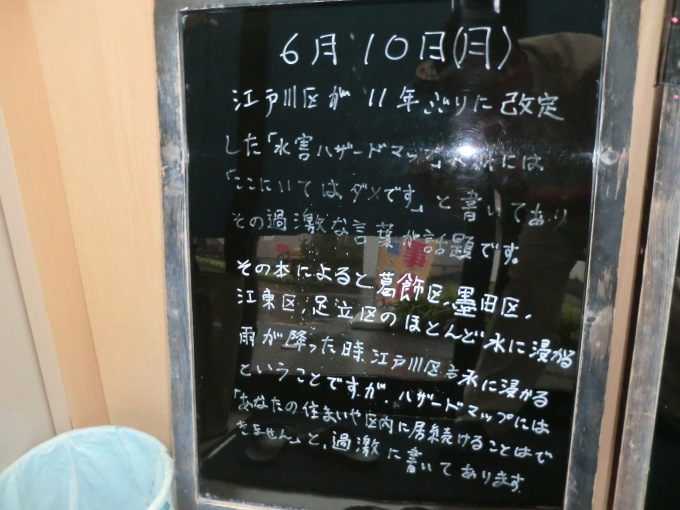 6月10日(月)
江戸川区が11年ぶりに改定
した「水害ハザードマップ」には
「ここにいてはダメです」と書いてあり
その過激な言葉が話題です。
その本によると葛飾区,墨田区,
江東区,足立区のほとんど水に浸かる
雨が降った時、江戸川区も水に浸かる
ということですが、ハザードマップには
「あなたの住まいや区内に居続けることはで
きません」と,過激に書いてあります